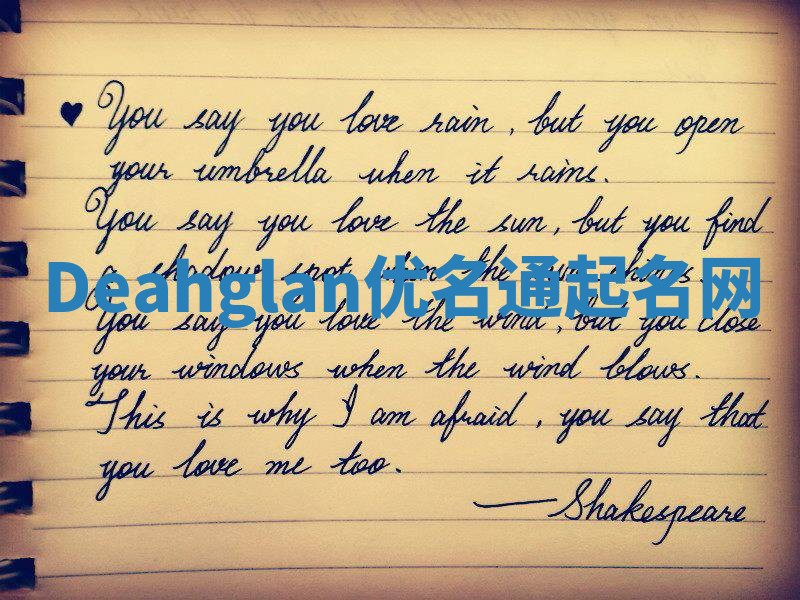 ♥ You say you love rain, but you open
your umbrella when it rains.
You say you love the sun, but you find
a shadow spot when the sun shines.
Deahglan优名通起名网
You say you love the wind, but you close
your windows when the wind blows.
This is why I am afraid, you say that
you love me too.
—Shakespeare